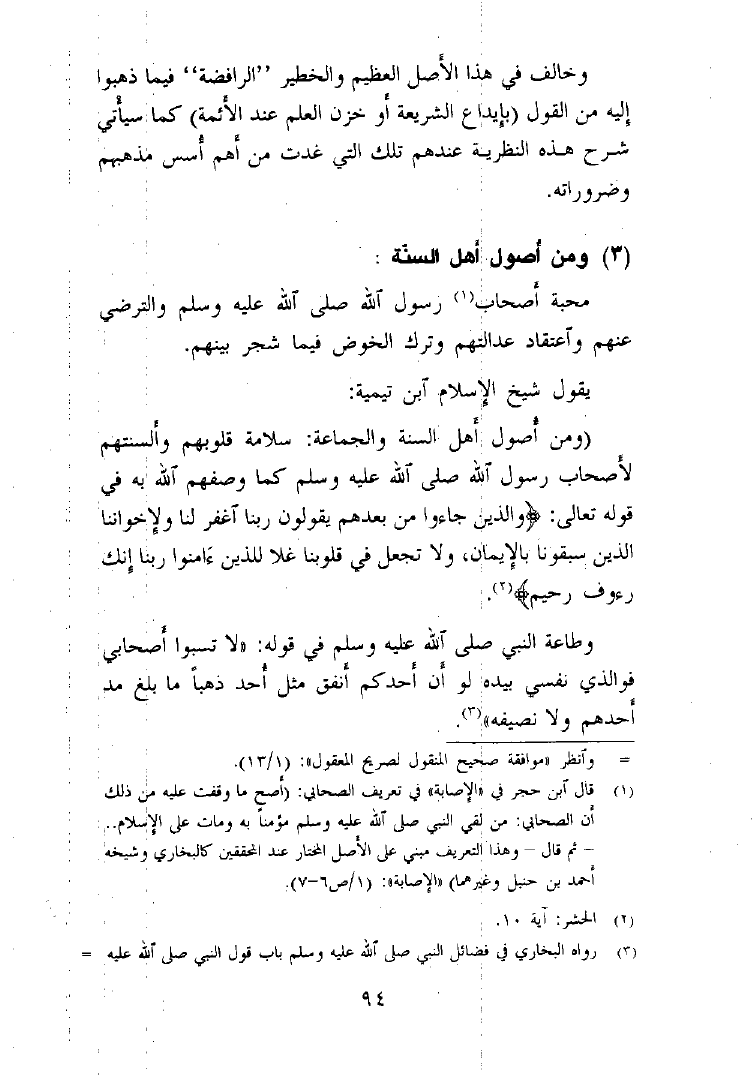 وخالف في هذا الأصل العظيم والخطير ”الرافضة“ فيما ذهبوا
إليه من القول (بإيداع الشريعة أو خزن العلم عند الأئمة) كما سيأتي
شرح هذه النظرية عندهم تلك التي غدت من أهم أُسس مذهبهم
وضروراته.
(٣) ومن أُصول أهل السنّة :
محبة أصحاب(١) رسول ٱلله صلى ٱلله عليه وسلم والترضي
عنهم وٱعتقاد عدالتهم وترك الخوض فيما شجر بينهم.
يقول شيخ الإسلام ٱبن تيمية:
(ومن أُصول أهل السنة والجماعة: سلامة قلوبهم وألسنتهم
لأصحاب رسول ٱلله صلى ٱلله عليه وسلم كما وصفهم ٱلله به في
قوله تعالى: ﴿والذين جاءوا من بعدهم يقولون ربنا ٱغفر لنا ولإخواننا
الذين سبقونا بالإيمان، ولا تجعل في قلوبنا غلا للذين ءَامنوا ربنا إنك
رءوف رحيم﴾(٢).
وطاعة النبي صلى ٱلله عليه وسلم في قوله: «لا تسبوا أصحابي
فوالذي نفسي بيده لو أن أحدكم أنفق مثل أُحد ذهباً ما بلغ مد
أحدهم ولا نصيفه»(٣).
= وٱنظر «موافقة صحيح المنقول لصريح المعقول»: (١٣/١).
(١) قال ٱبن حجر في «الإصابة» في تعريف الصحابي: (أصح ما وقفت عليه من ذلك
أن الصحابي: من لقي النبي صلى ٱلله عليه وسلم مؤمناً به ومات على الإسلام..
– ثم قال – وهذا التعريف مبني على الأصل المختار عند المحققين كالبخاري وشيخه
أحمد بن حنبل وغيرهما) «الإصابة»: (١/ص٦–٧).
(٢) الحشر: آية ١٠.
(٣) رواه البخاري في فضائل النبي صلى ٱلله عليه وسلم باب قول النبي صلى ٱلله عليه =
٩٤